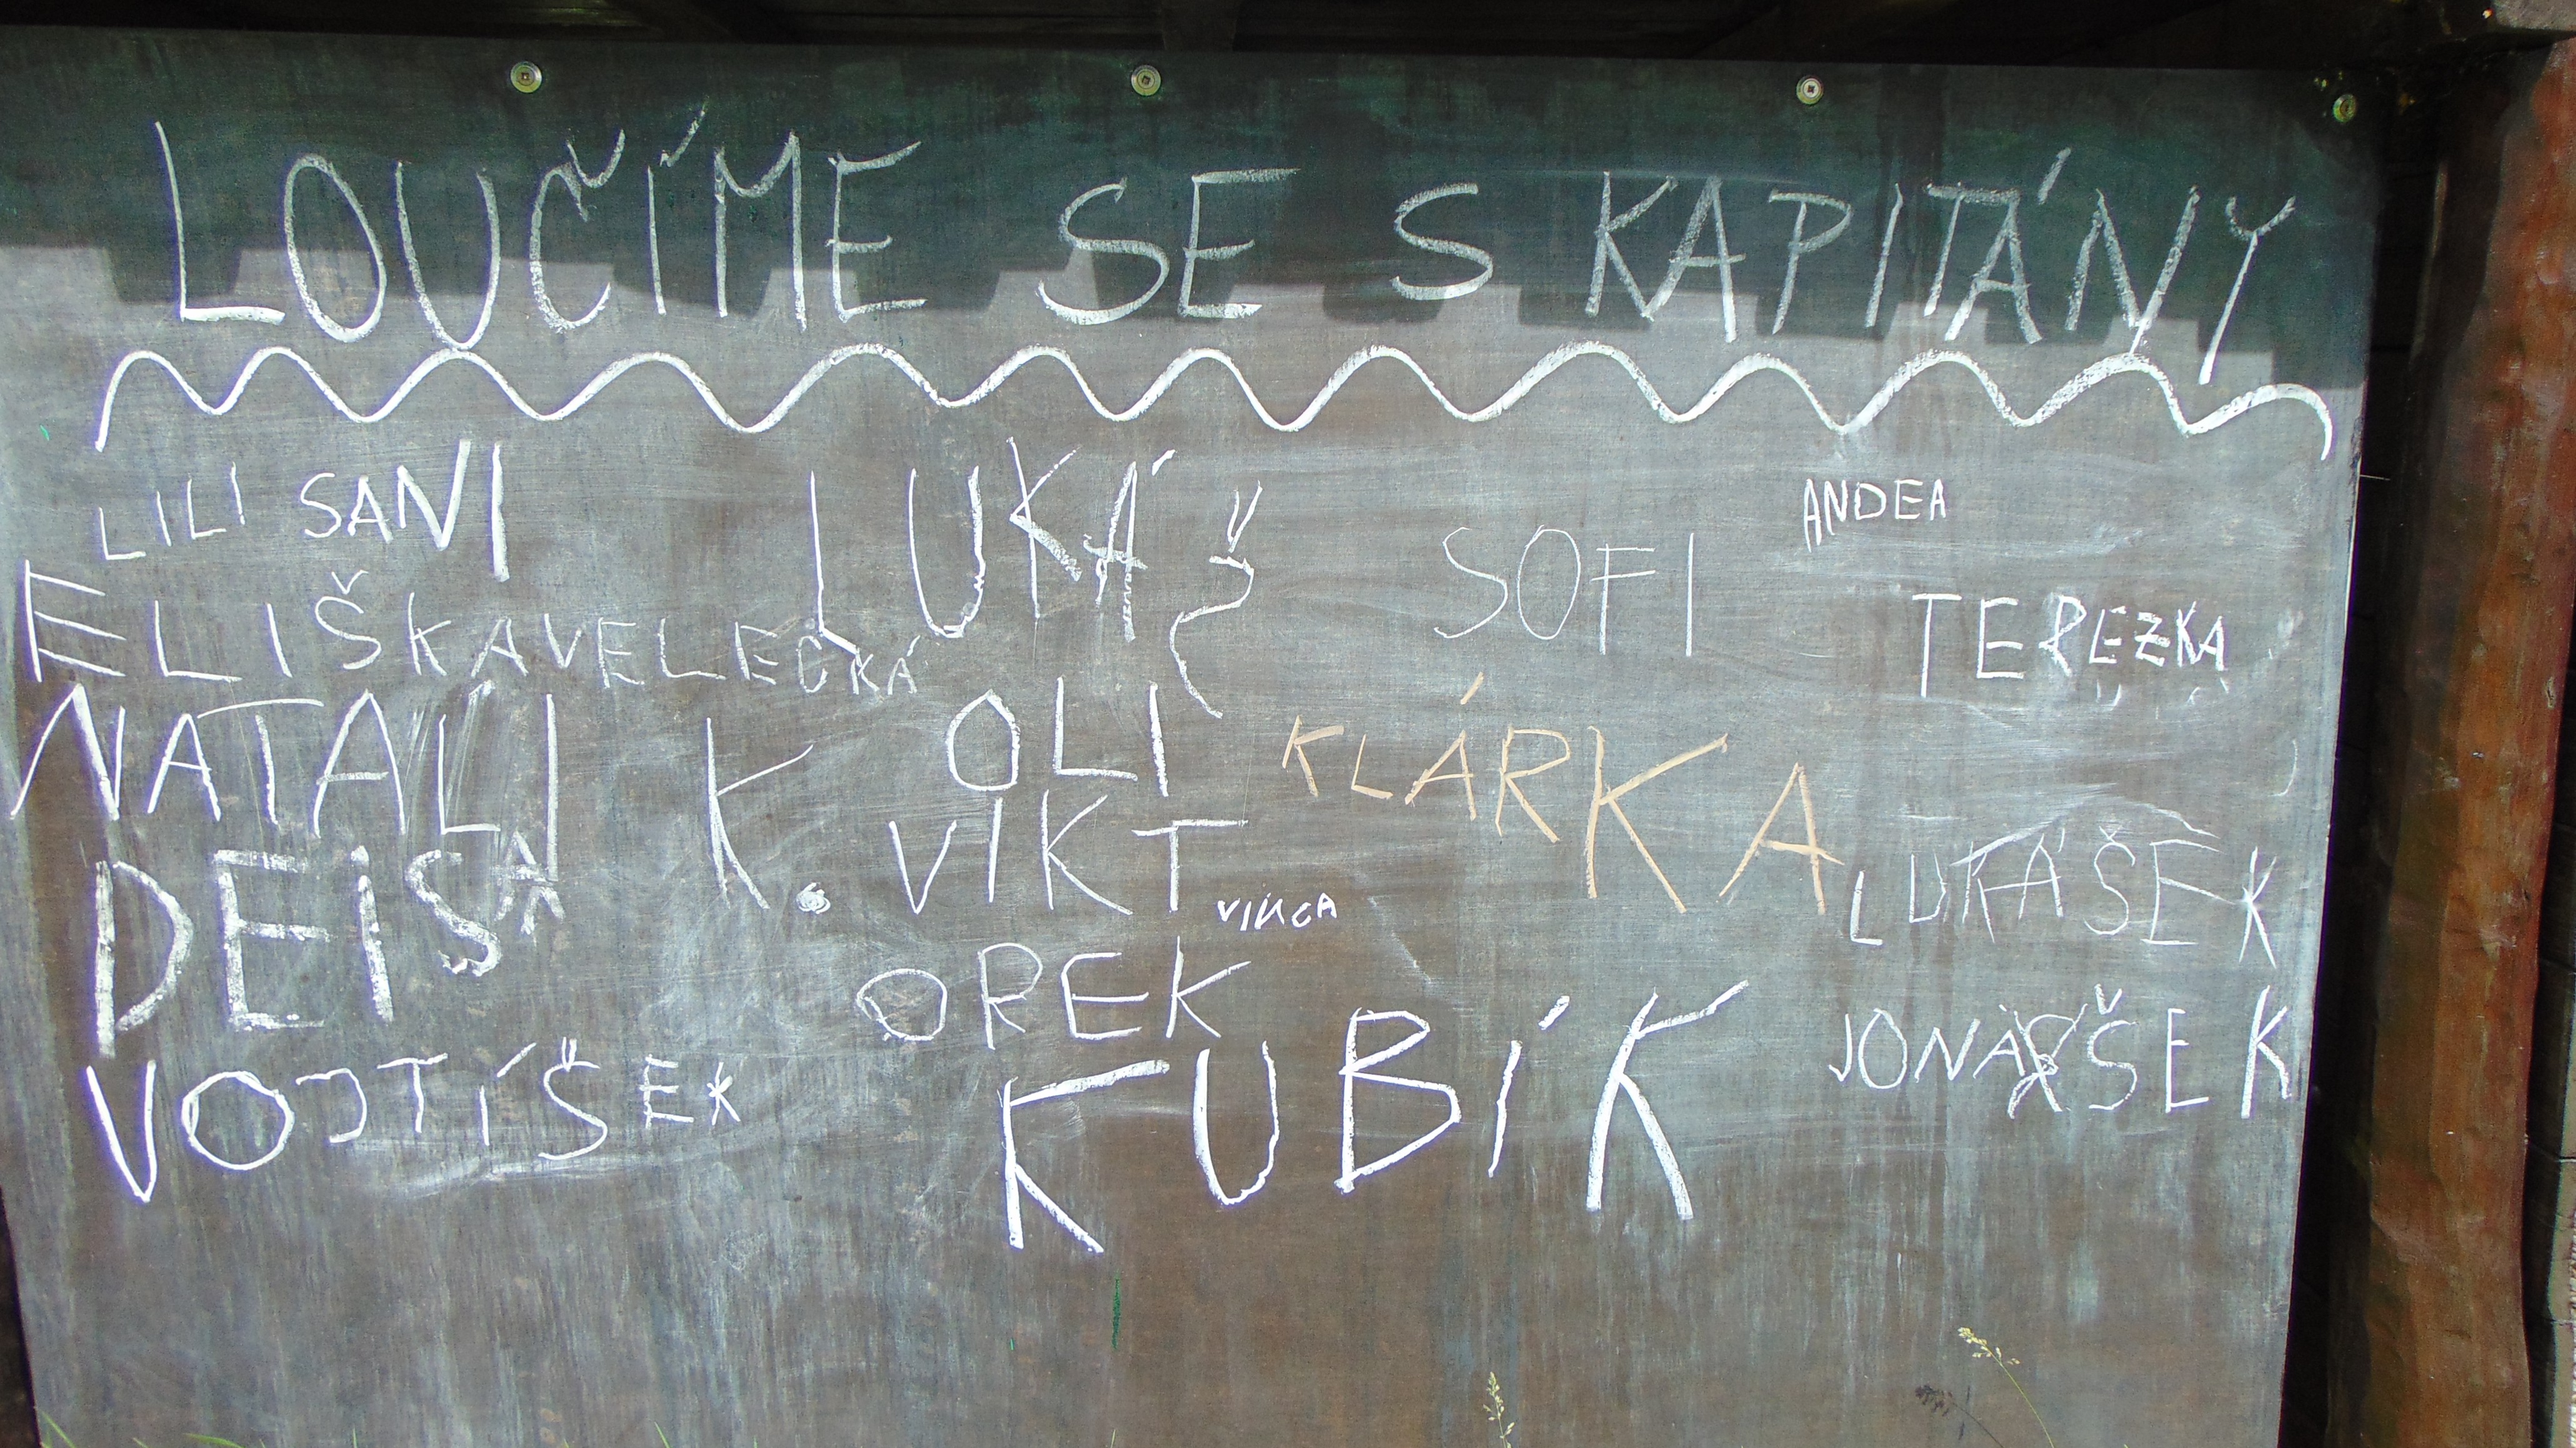 LOUČÍME SE S KAPITÁNY
LILI SANI
LUKÁŠ
SOFI
ANDEA
ELIŠKA VELECKÁ
TEREZKA
NATALI K.
OLI
KLÁRKA
VIKT
DEISA
LUKÁŠEK
OREK
JONÁŠEK
VOJTÍŠEK
KUBÍK